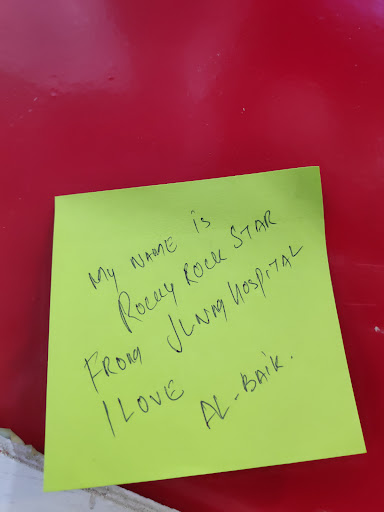 MY NAME iS
ROCKY ROCK STAR
FROM JLNM HOSPITAL
I LOVE
AL-BAIK.